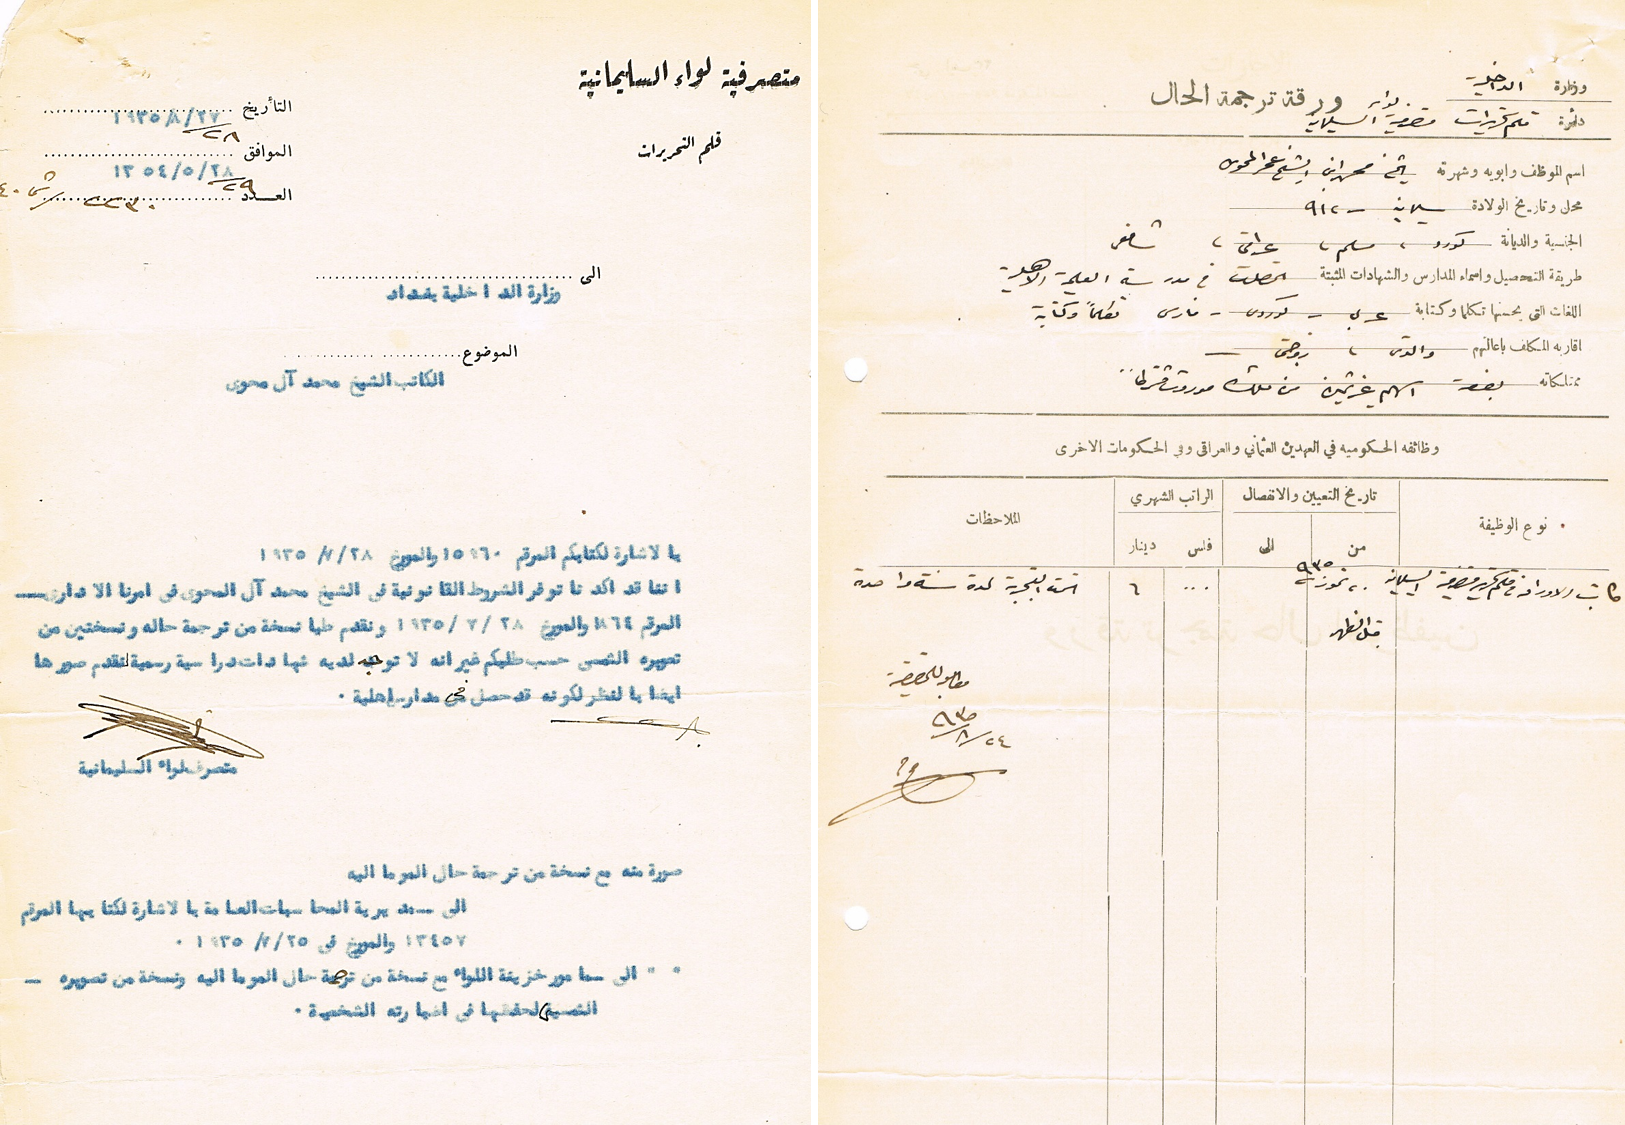 متصرفية لواء السليمانية
قلم التحريرات
التأريخ ١٩٣٥/٨/٢٧
٢٨
الموافق ١٣٥٤/٥/٢٨
٢٩
العدد
الى
وزارة الداخلية بغداد
الموضوع
الكاتب الشيخ محمد آل محوى
بالاشارة لكتابكم المرقم ١٥٩٦٠ والمورخ ١٩٣٥/٧/٢٨
اننا قد اكدنا توفر الشروط القانونية فى الشيخ محمد آل المحوى فى امرنا الادارى
المرقم ١٨٦٤ والمورخ ١٩٣٥/٧/٢٨ ونقدم طيا نسخة من ترجمة حاله ونسختين من
تصويره الشمسى حسب طلبكم غير انه لا توجد لديه شهادات دراسية رسمية لنقدم صورها
ايضا بالنظر لكونه قد حصل فى مدارس اهلية ٠
متصرف لواء السليمانية
صورة منه مع نسخة من ترجمة حال الموما اليه
الى مديرية المحاسبات العامة بالاشارة لكتابها المرقم
١٣٤٥٧ والمورخ فى ١٩٣٥/٧/٢٥ ٠
" " الى مامور خزينة اللواء مع نسخة من ترجمة حال الموما اليه ونسخة من تصويره
الشمسى لحفظها فى اضبارته الشخصية ٠
وزارة الداخلية
دائرة قلم تحريرات متصرفية لواء السليمانية
ورقة ترجمة الحال
اسم الموظف وابويه وشهرته شيخ محمد ابن الشيخ عمر المحوى
محل وتاريخ الولادة سليمانية - ٩١٢
الجنسية والديانة كورد ، مسلم ، عراقى ، شافعى
طريقة التحصيل واسماء المدارس والشهادات المثبتة تحصلت فى مدرسة العلمية الاهلية
اللغات التي يحسنها تكلما وكتابة عربى - كوردى - فارسى تكلماً وكتابة
اقاربه المكلف باعالتهم والدتى ، زوجتى
ممتلكاته بضعة اسهم غير ثمينة من ملك موروث فقط
وظائفه الحكوميه في العهدين العثماني والعراقي وفي الحكومات الاخرى
نوع الوظيفة
تاريخ التعيين والانفصال
من
الى
الراتب الشهري
فلس
دينار
الملاحظات
كاتب الاوراق فى قلم تحرير متصرفية السليمانية
٢٠ تموز ٩٣٥
٠٠٠
٦
تحت التجربة لمدة سنة واحدة
قبل الظهر
مطابق للحقيقة
٩٣٥/٨/٢٤